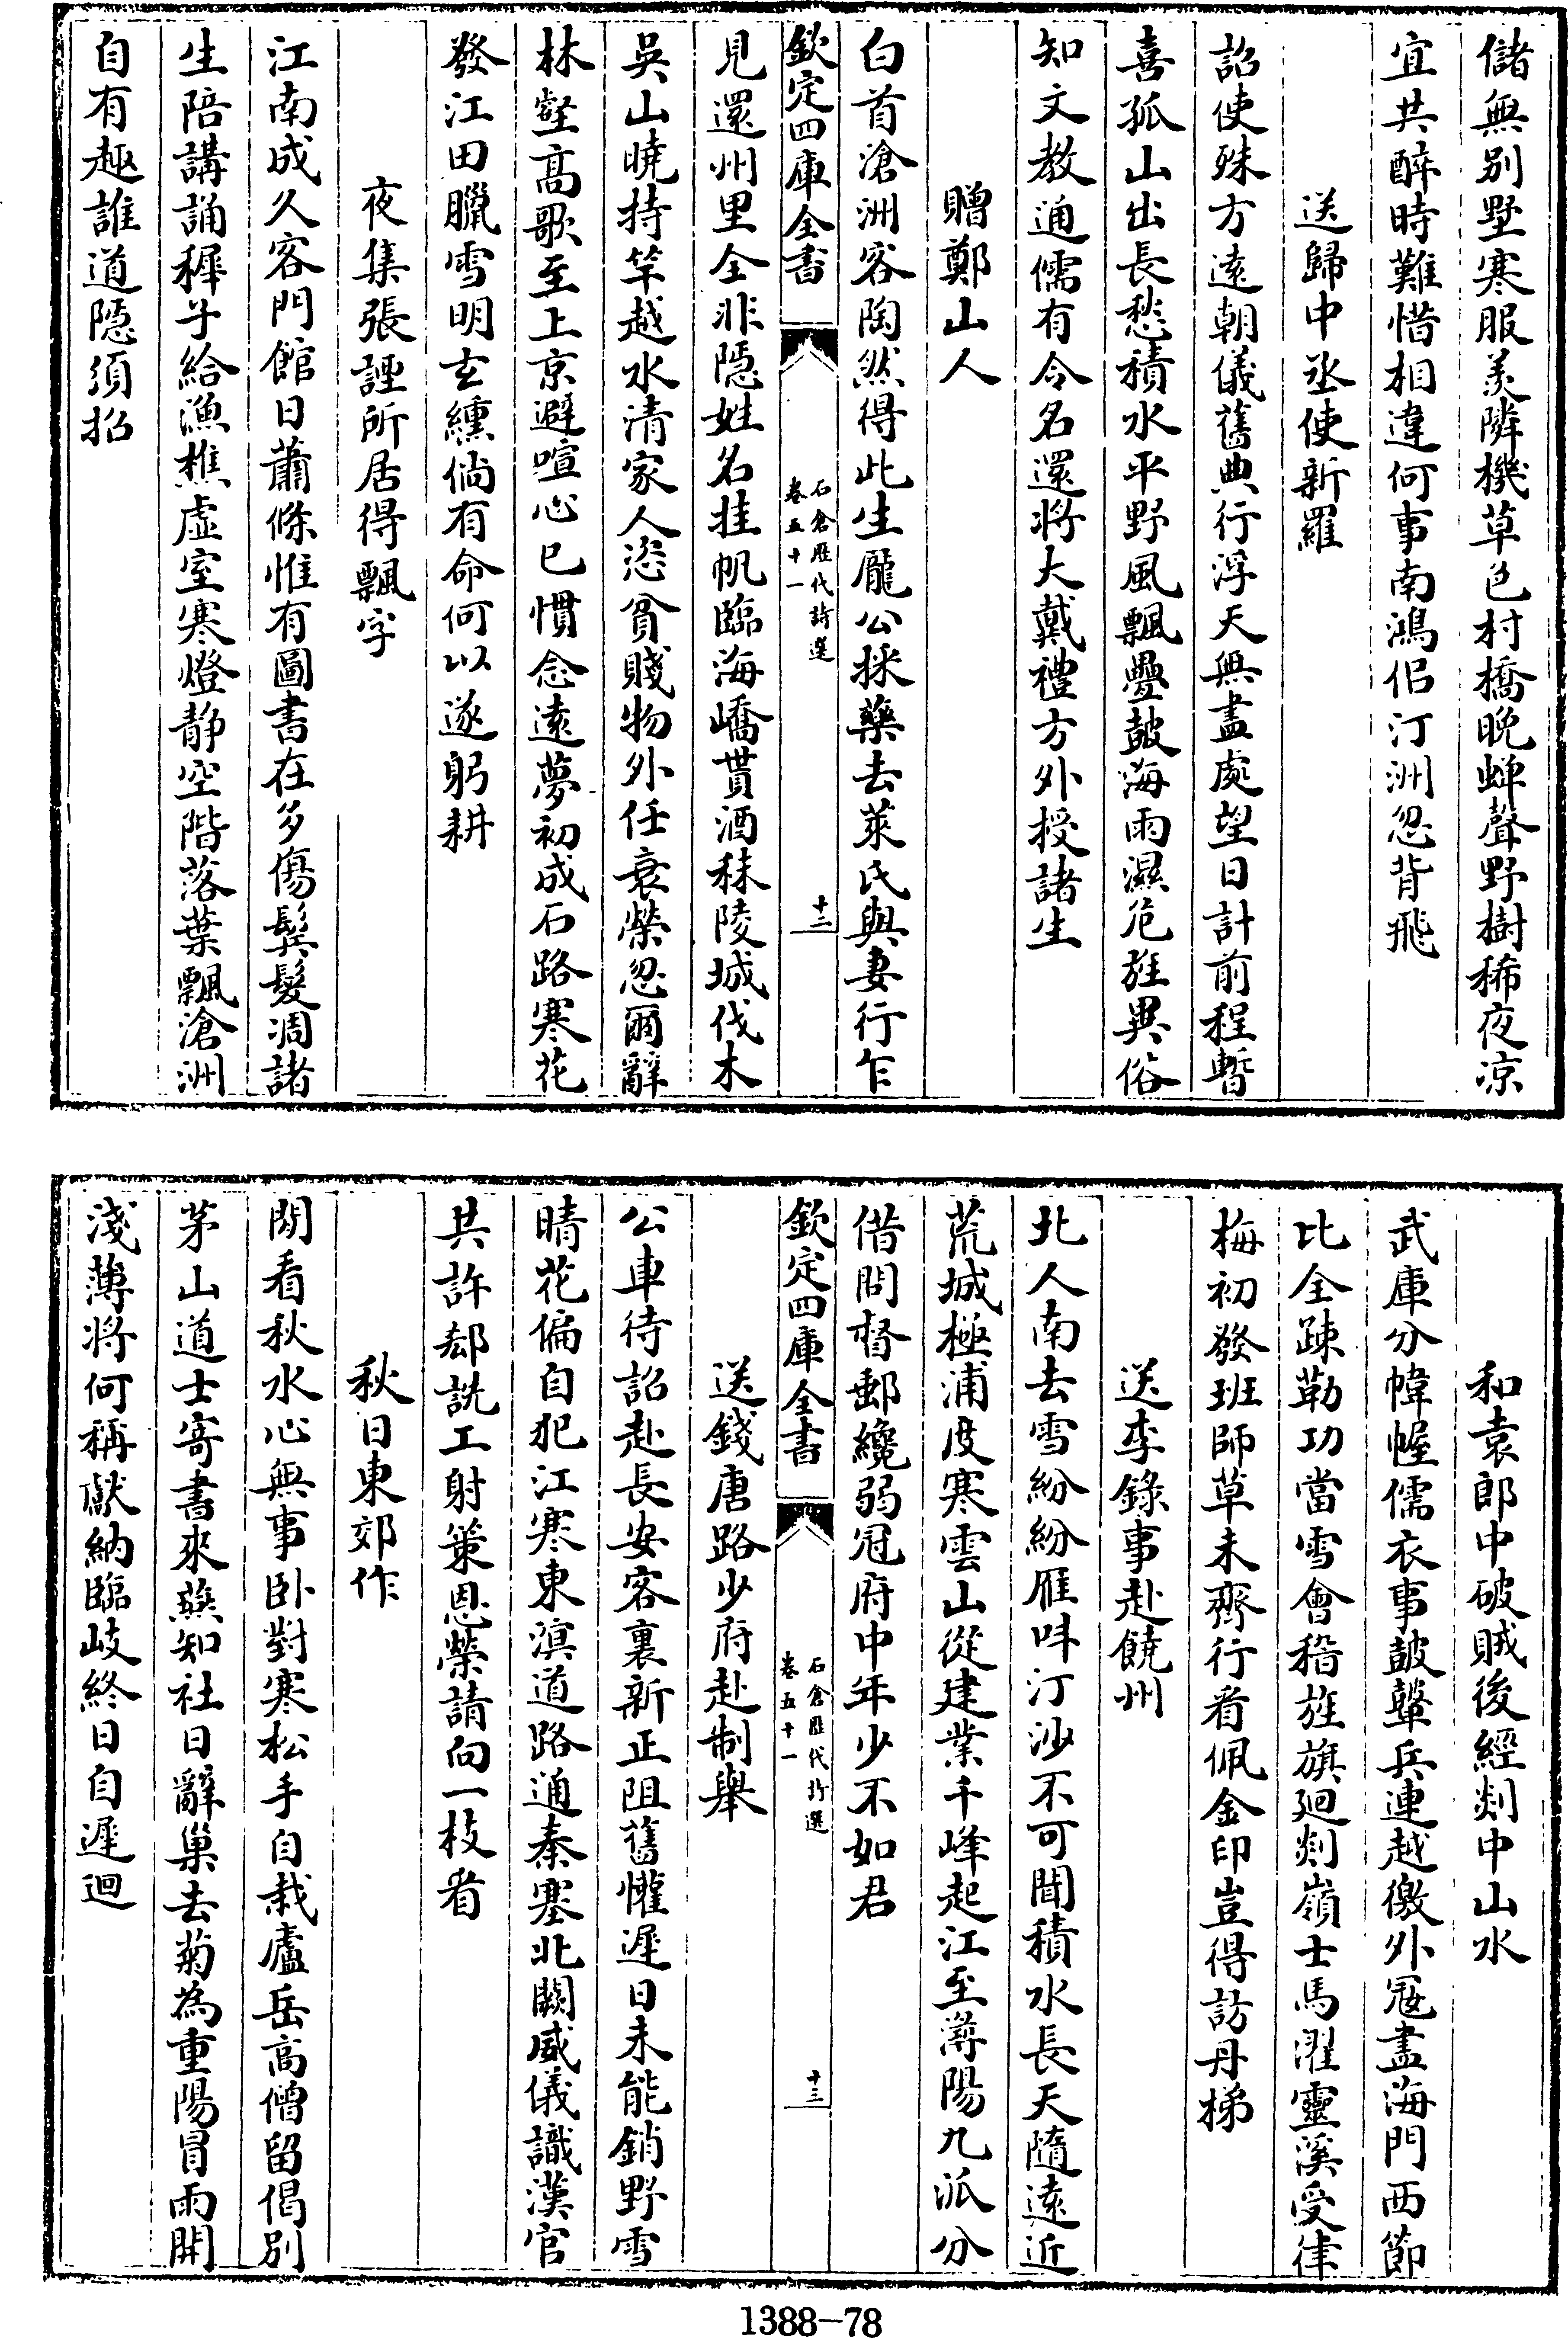 儲無別墅寒服羡隣機草色村橋晚蟬聲野樹稀夜凉
宜共醉時難惜相違何事南鴻侶汀洲忽背飛
送歸中丞使新羅
詔使殊方遠朝儀舊典行浮天無盡處望日計前程暫
喜孤山出長愁積水平野風飄疊鼓海雨濕危旌異俗
知文教通儒有令名還將大戴禮方外授諸生
贈鄭山人
白首滄洲客陶然得此生龐公採藥去萊氏與妻行乍
欽定四庫全書
石倉歷代詩選
卷五十一
十二
見還州里全非隱姓名挂帆臨海嶠貰酒秣陵城伐木
吳山曉持竿越水清家人恣貧賤物外任衰榮忽爾辭
林壑髙歌至上京避喧心已慣念遠夢初成石路寒花
發江田臘雪明玄纁倘有命何以遂躬耕
夜集張諲所居得飄字
江南成久客門館日蕭條惟有圖書在多傷鬢髮凋諸
生陪講誦稺子給漁樵虛室寒燈静空階落葉飄滄洲
自有趣誰道隱須招
和袁郎中破賊後經剡中山水
武庫分幃幄儒衣事鼓鼙兵連越徼外冦盡海門西節
比全疎勒功當雪會稽旌旗廻剡嶺士馬濯靈溪受律
梅初發班師草未齊行看佩金印豈得訪丹梯
送李錄事赴饒州
北人南去雪紛紛雁呌汀沙不可聞積水長天隨逺近
荒城極浦度寒雲山從建業千峰起江至潯陽九派分
借問督郵纔弱冠府中年少不如君
欽定四庫全書
石倉歷代詩選
卷五十一
十三
送錢唐路少府赴制舉
公車待詔赴長安客裏新正阻舊懽遲日未能銷野雪
晴花偏自犯江寒東溟道路通秦塞北闕威儀識漢官
共許郄詵工射策恩榮請向一枝看
秋日東郊作
閒看秋水心無事卧對寒松手自栽廬岳高僧留偈別
茅山道士寄書來燕知社日辭巢去菊為重陽冒雨開
淺薄將何稱獻納臨岐終日自遲迴
1388－78